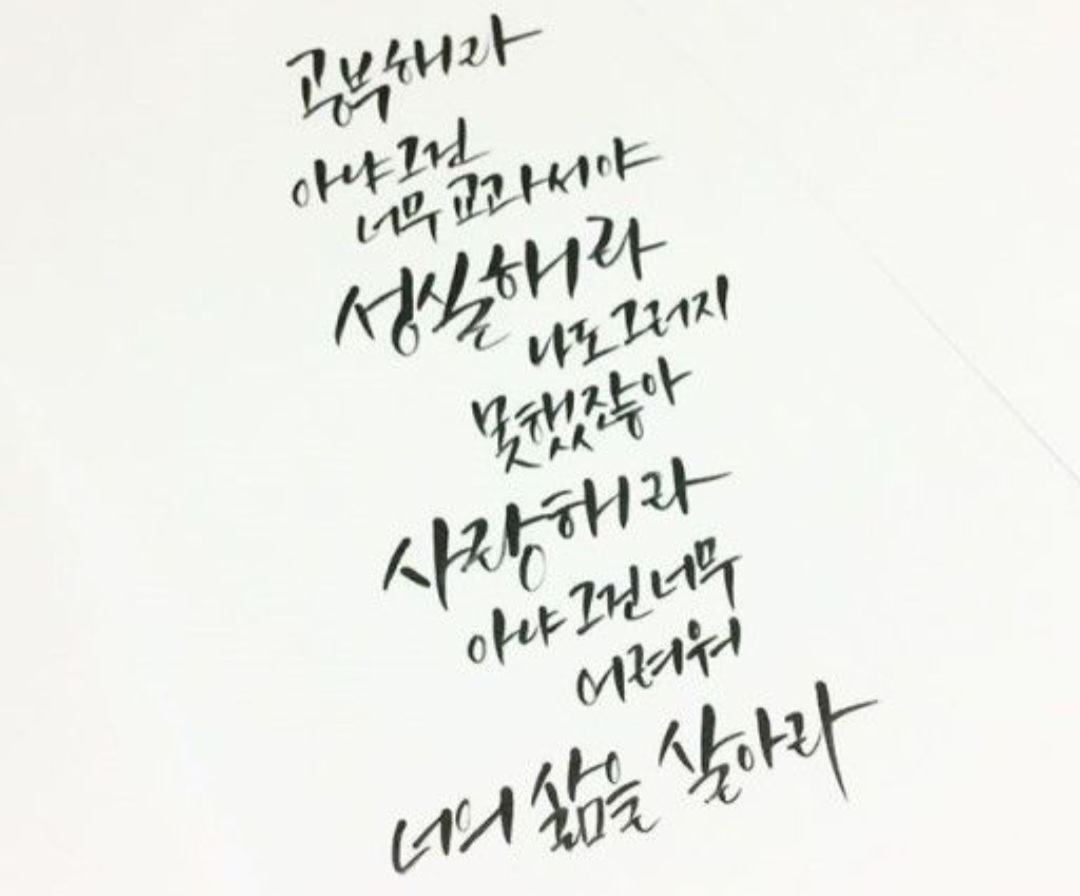 공부해라
아냐 그건
너무 교과서야
성실해라
나도 그러지
못했잖아
사랑해라
아냐 그건 너무
어려워
너의 삶을 살아라